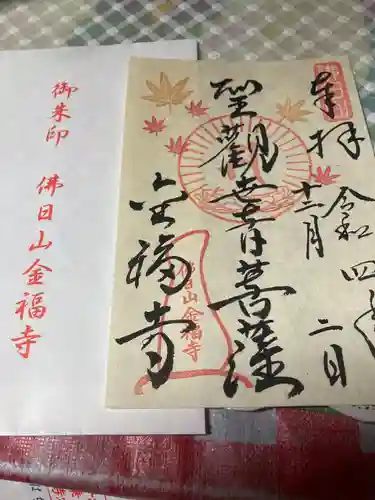 御朱印
佛日山金福寺
奉拝
令和四年
十二月
二日
聖観世音菩薩
佛日山金福寺
金福寺